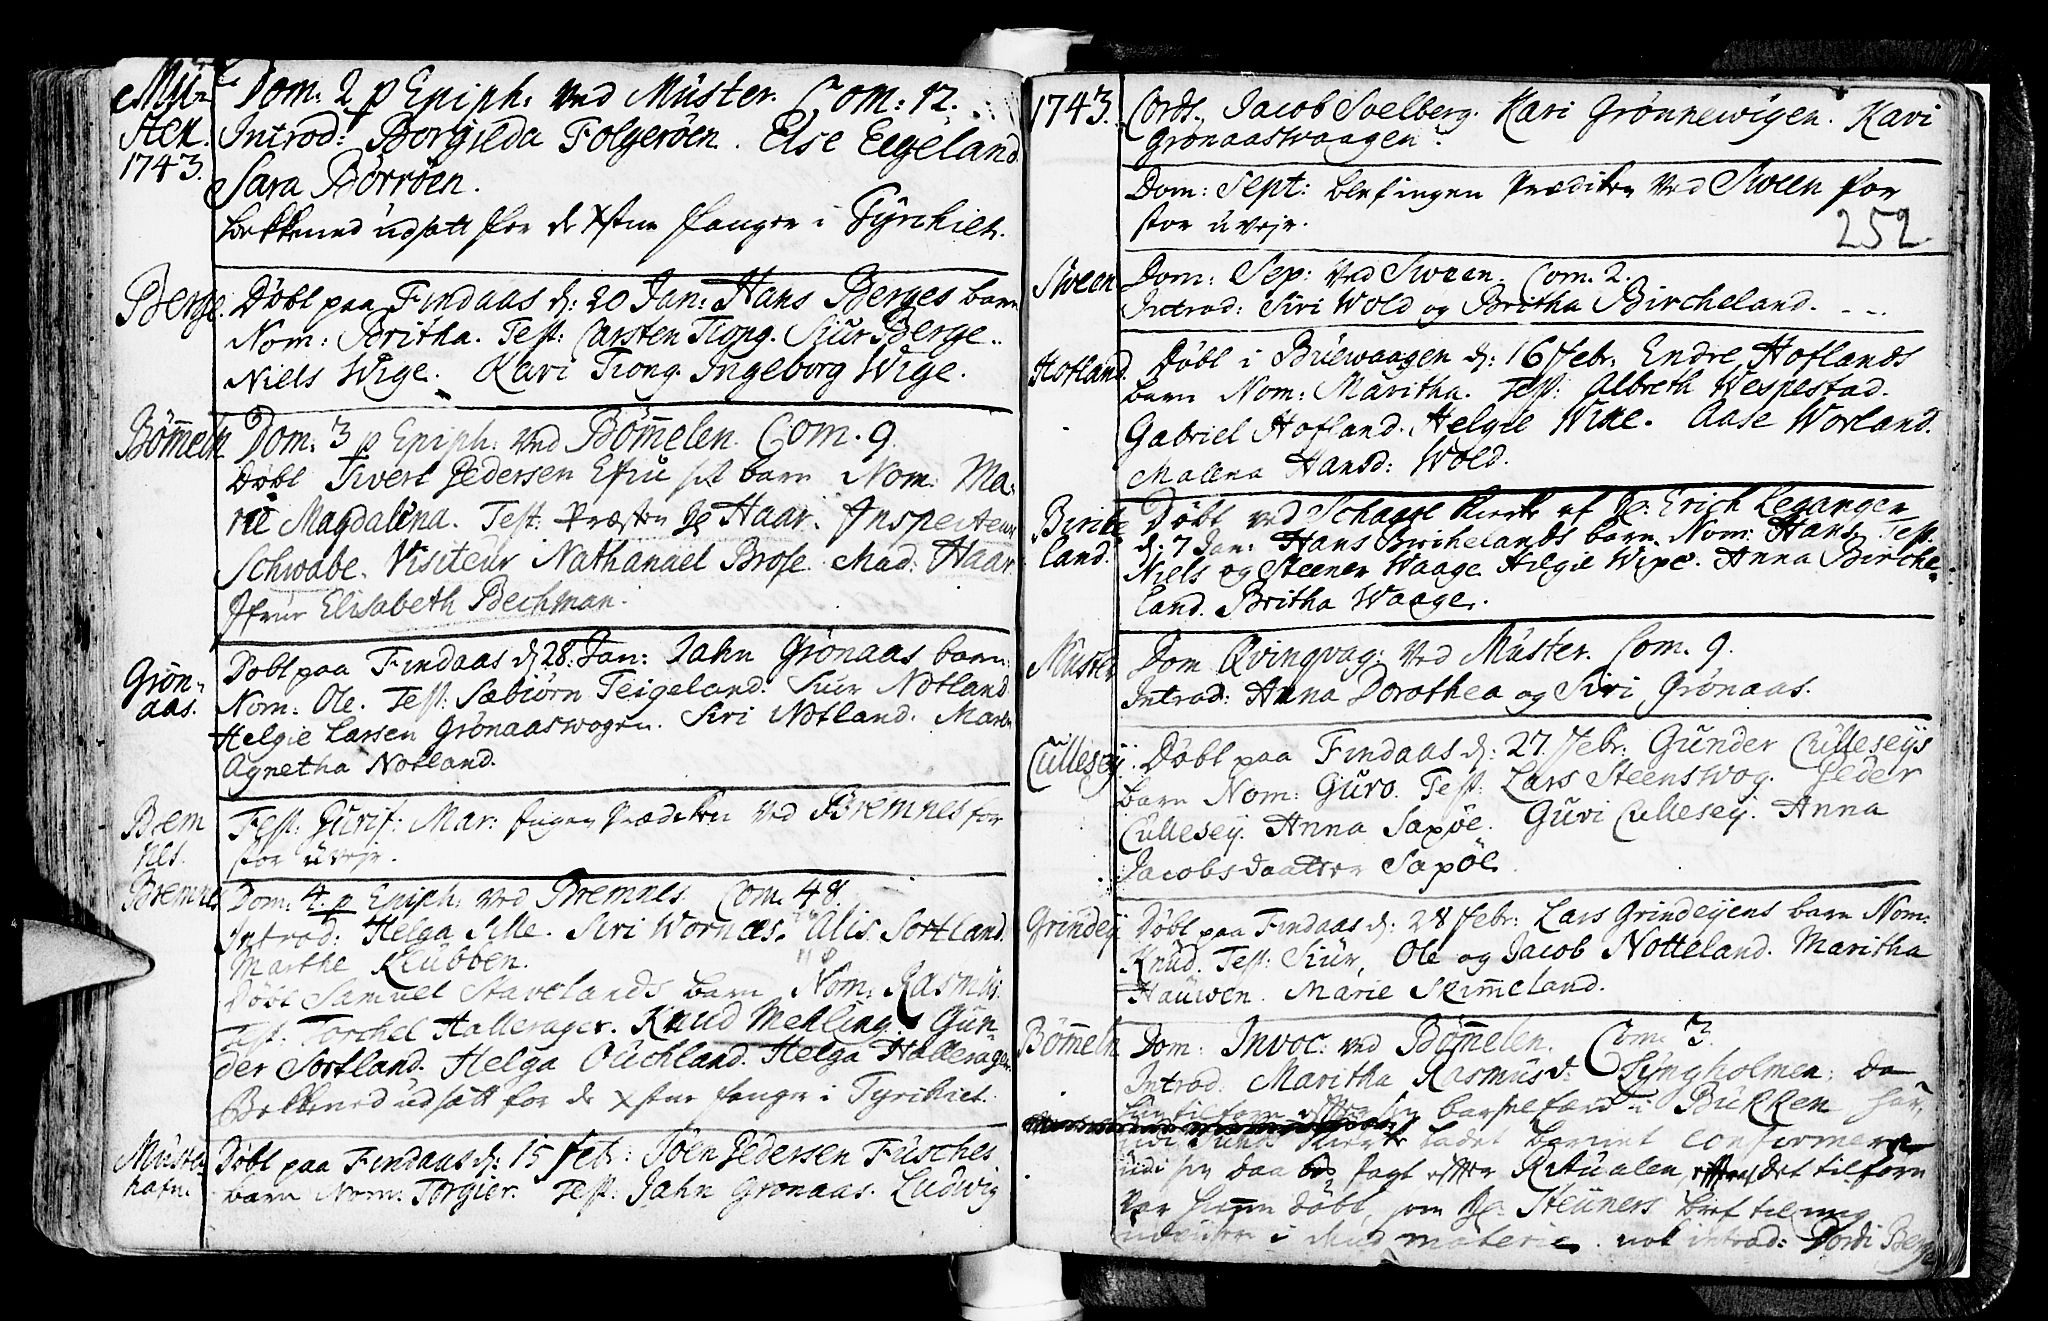 Mu-
ster.
1743.
Dom: 2 p Epiph: ved Müster. Com: 12.
Introd: Borgilda Folgerøen. Else Eegeland
Sara Børrøen.
bekkened udsatt for de Xstne fanger i Tyrckiet.
Berge.
Døbt paa Findaas d: 20 Jan: Hans Berges barn
Nom: Britha. Test: Carsten Tiong. Siur Berge.
Niels Wige. Kari Tiong. Ingeborg Wige.
Bømeln
Dom: 3 p Epiph: ved Bømelen. Com. 9.
Døbt Sivert Pedersen Espevær barn Nom: Ma-
rie Magdalena. Test: Præsten Hr Haar. Inspecteur
Schwabe. Visiteur Nathanael Brose. Mad: Haar
Jfrur Elisabeth Bechman.
Grøn-
aas.
Døbt paa Findaas d 28. Jan: Jahn Grønaas barn
Nom: Ole. Test: Sæbiørn Teigeland. Siur Notland
Helgie Larsen Grønaaswogen. Siri Notland. Maren
Agnetha Notland.
Brem
nes.
Fest: Purif: Mar: ingen Prædiken ved Bremnes for
stor uvejr.
Bremnes
Dom: 4 p Epiph: ved Bremnes. Com. 48.
Introd: Helga Sille. Siri Wornæs. Alis Sortland.
Marthe Klubben.
Døbt Samuel Stavelands barn Nom: Rasmus.
Test: Torchel Hallerager. Knud Mehling. Gun-
der Sortland. Helga Ouchland. Helga Hallerager.
Bekkened udsatt for de Xstne fanger i Tyrchiet.
Müster
hafn.
Døbt paa Findaas d: 15 Febr: Jøen Pedersen Füsches
barn Nom: Torgier. Test: Jahn Grønaas. Ludwig
1743.
Cords. Jacob Soelberg. Kari Grønnewigen. Kari
Grønaaswaagen.
Dom: Sept: blef ingen Prædiken ved Sween for
stor uvejr.
252
Sween
Dom: Sep: ved Sween. Com. 2.
Introd: Siri Wold og Britha Bircheland.
Hofland.
Døbt i Büewaagen d: 16 Febr. Endre Hoflands
barn Nom: Maritha. Test: Albreth Wespestad.
Gabriel Hofland. Helgie Wike. Aase Worland.
Malena Hansd: Wold.
Birche
land.
Døbt ved Schaare Kirke af Hr: Erich Leganger
d: 7 Jan: Hans Birchelands barn. Nom: Hans. Test.
Niels og Steener Waage. Helgie Wixe. Anna Birche-
land. Britha Waage.
Müster
Dom Qvinqvag: ved Müster. Com. 9.
Introd: Anna Dorothea og Siri Grønaas.
Cullesey.
Døbt paa Findaas d: 27. Febr: Gunder Culleseys
barn Nom: Guro. Test: Lars Steenswog. Peder
Cullesey. Anna Saxøe. Guri Cullesey. Anna
Jacobsdaatter Saxøe.
Grindey
Døbt paa Findaas d: 28 Febr: Lars Grindeyens barn Nom:
Knud. Test: Siur, Ole og Jacob Notteland. Maritha
Hauwen. Marie Skimeland.
Bømeln
Dom: Invoc: ved Bømelen. Com. 3.
Introd: Maritha Rasmusd: Syngholmen; Da
hun tilforn efter sin barselfærd i Bukken har,
udi kirke ladet barnet confirmere
udi sin daab, sagt efter Ritualen, det tilforn
var hiemme døbt, som Hr. Steüners bref til mig
udviser i med materie. nok introd: Dordi Berge